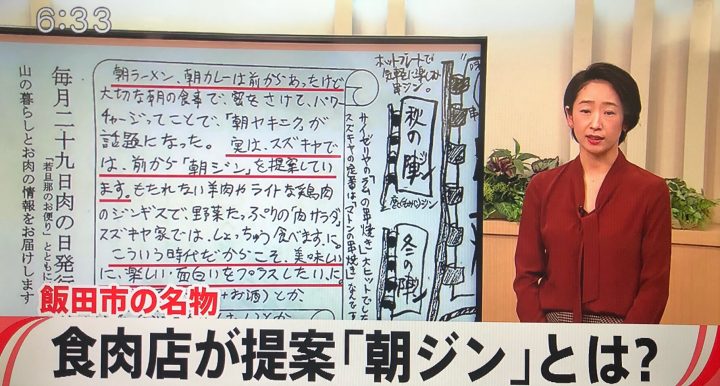 6:33
ホットプレートで
気軽に楽しめ
串ジン。
秋の陣
冬の陣
サイゼリヤの「ラムの串焼き」大ヒットでし
スズキヤの定番は「マトンの串焼き」なんです
朝ラーメン、朝カレーは前からあったけど
大切な朝の食事で、密をさけて、パワー
チャージってことで、「朝ヤキニク」が
話題になった。実は、スズキヤで
は、前から「朝ジン」を提案してい
ます。もたれない羊肉やライトな鶏肉
のジンギスで野菜たっぷりの「肉サラダ」
スズキヤ家では、しょっちゅう食べますに。
こういう時代だからこそ、美味しい
に、楽しい・面白いをプラスしたいに。
+お酒)とか、
毎月二十九日肉の日発行
「若旦那のお便り」とともに
山の暮らしとお肉の情報をお届けします
飯田市の名物
食肉店が提案「朝ジン」とは?